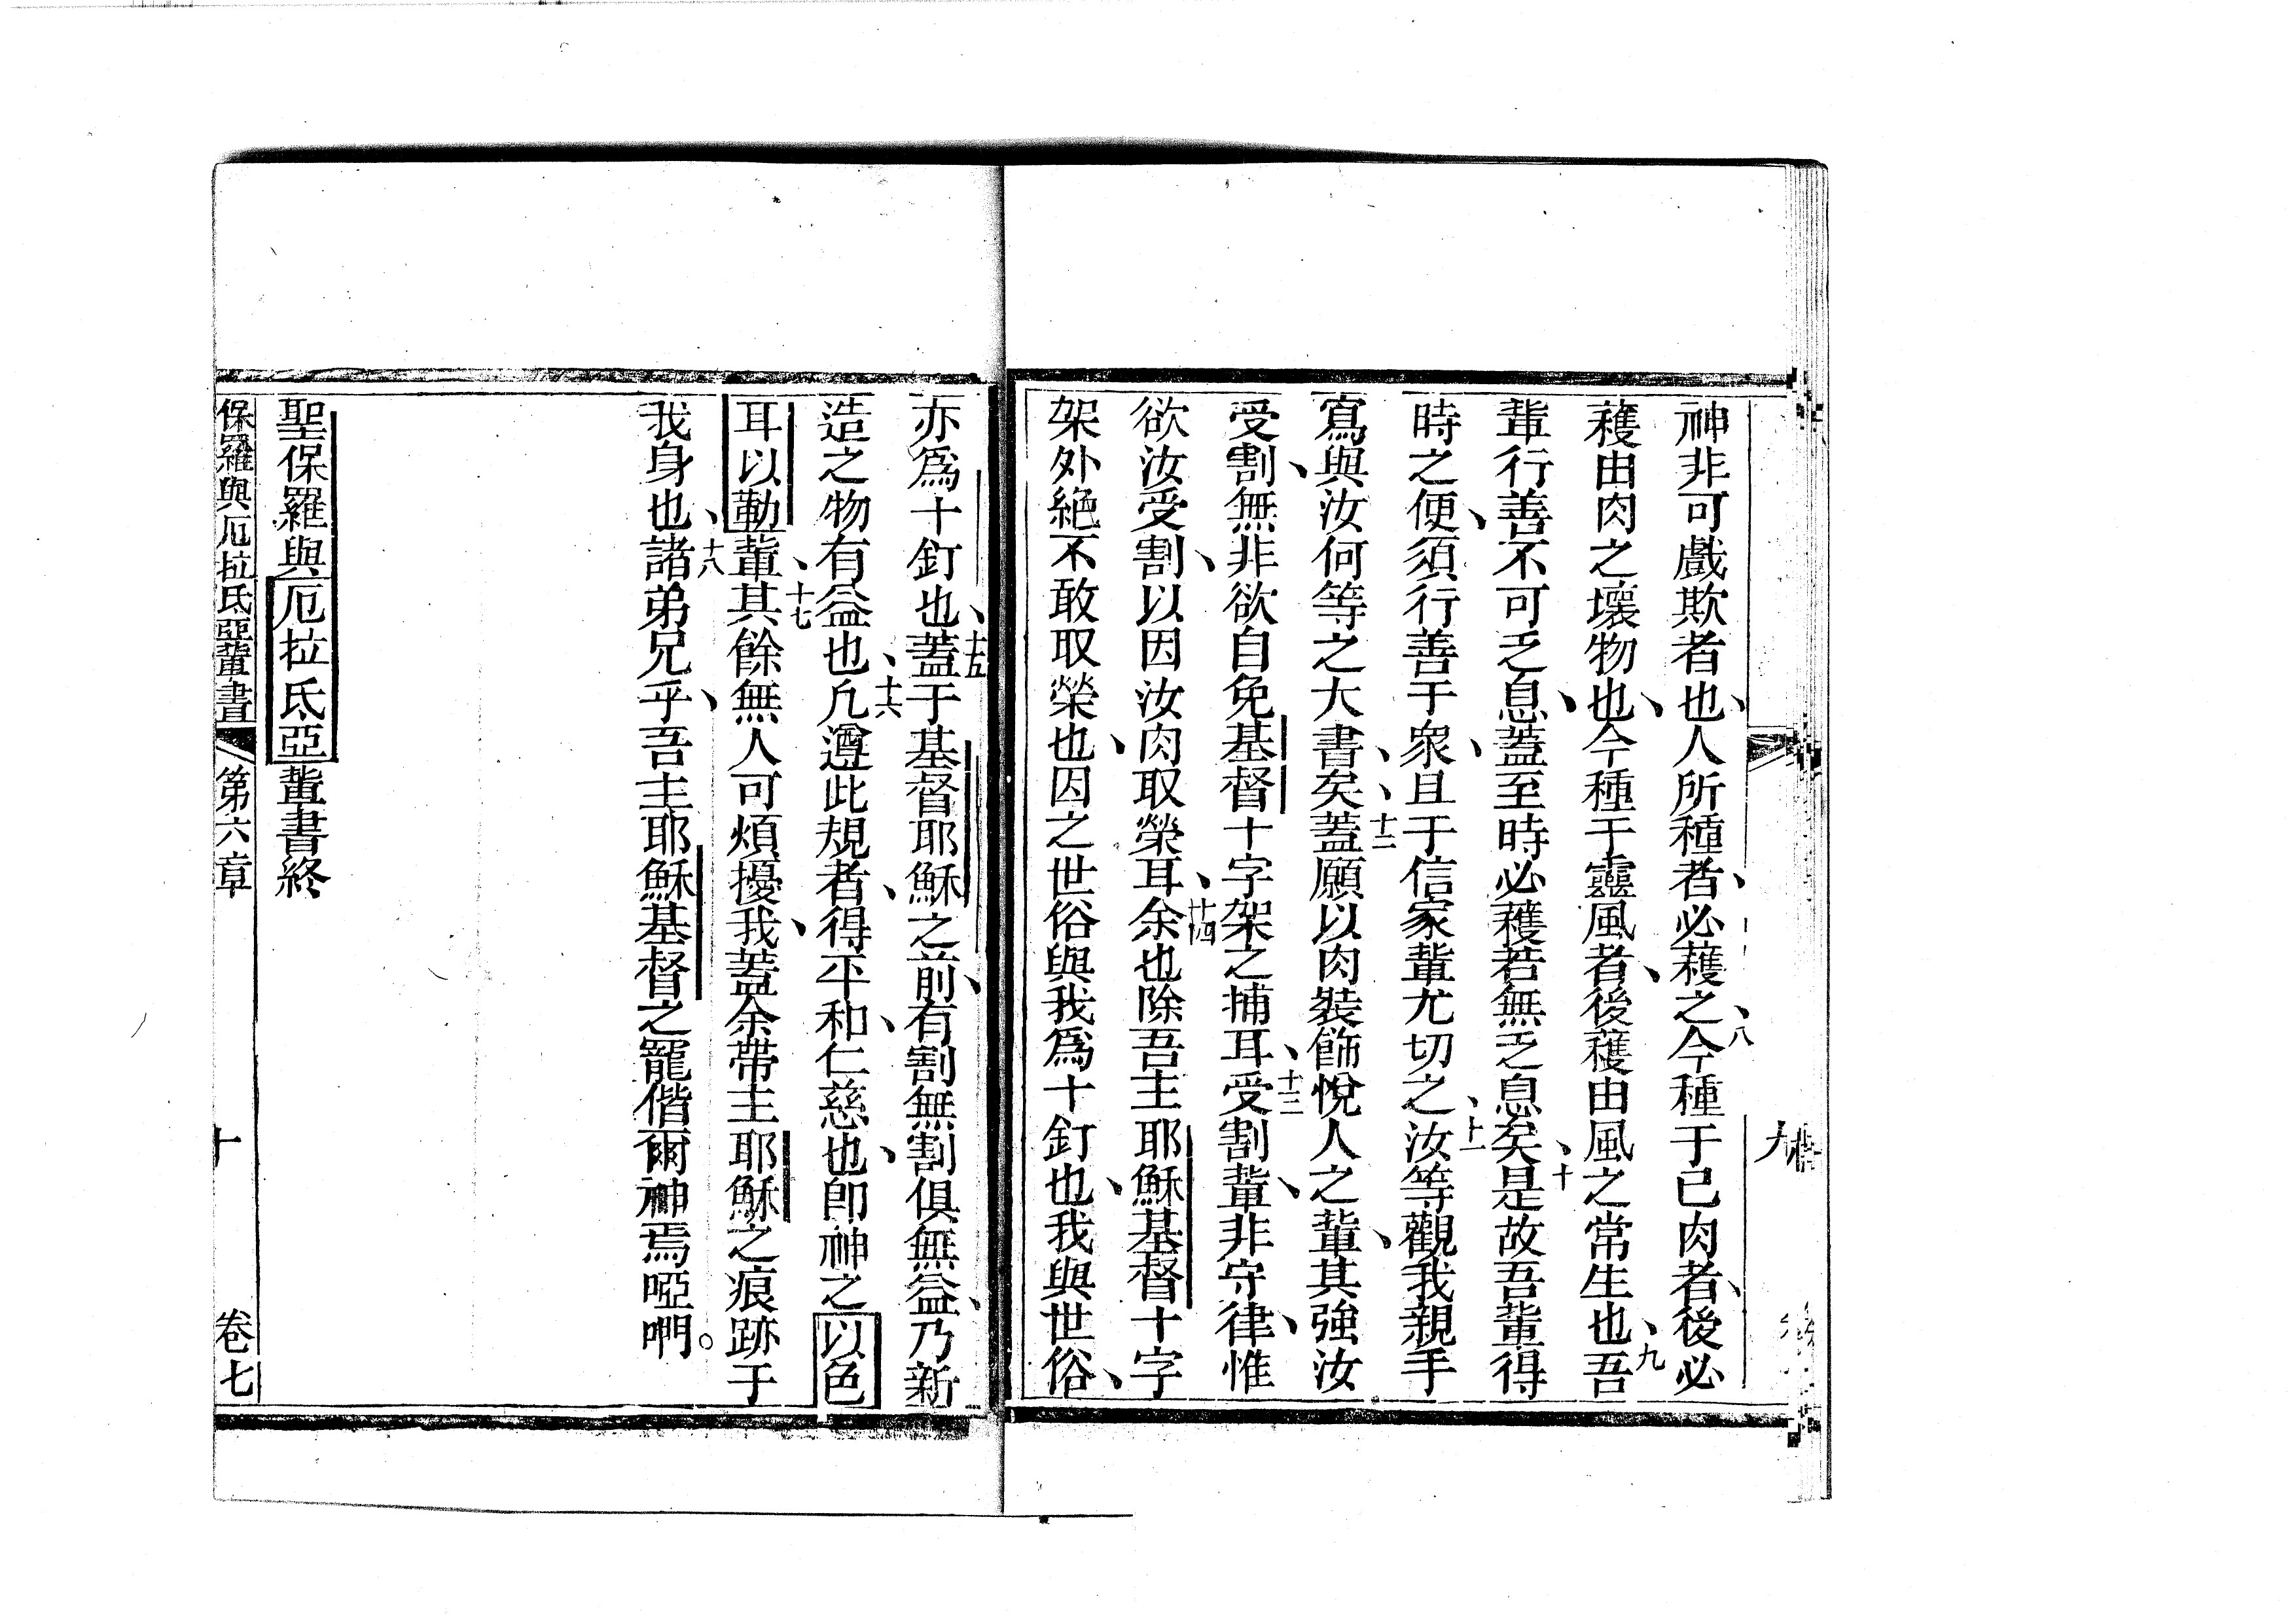 神非可戲欺者也、人所種者、必穫之、八今種于己肉者、後必
穫由肉之壞物也、今種于靈風者、後穫由風之常生也、九吾
軰行善不可乏息、蓋至時必穫若無乏息矣、十是故吾軰得
時之便、須行善于衆、且于信家軰尤切之、十一汝等觀我親手
寫與汝何等之大書、矣、十二蓋願以肉裝飾悅人之軰、其強汝
受割、無非欲自免基督十字架之捕耳、十三受割軰、非守律、惟
欲汝受割、以因汝肉取榮耳、十四余也除吾主耶穌基督十字
架外絕不敢取榮也、因之世俗與我爲十釘也、我與世俗、
亦爲十釘也、十五蓋于基督耶穌之前、有割無割俱無益、乃新
造之物有益也、十六凢遵此規者、得平和、仁慈也、卽神之以色
耳以勒軰、十七其餘無人可煩擾我、蓋余帶主耶穌之痕跡于
我身也、十八諸弟兄乎、吾主耶穌基督之寵偕爾神焉啞唎。
聖保羅與厄拉氐亞軰書終
保羅與厄拉氐亞軰書 第六章 十 卷七